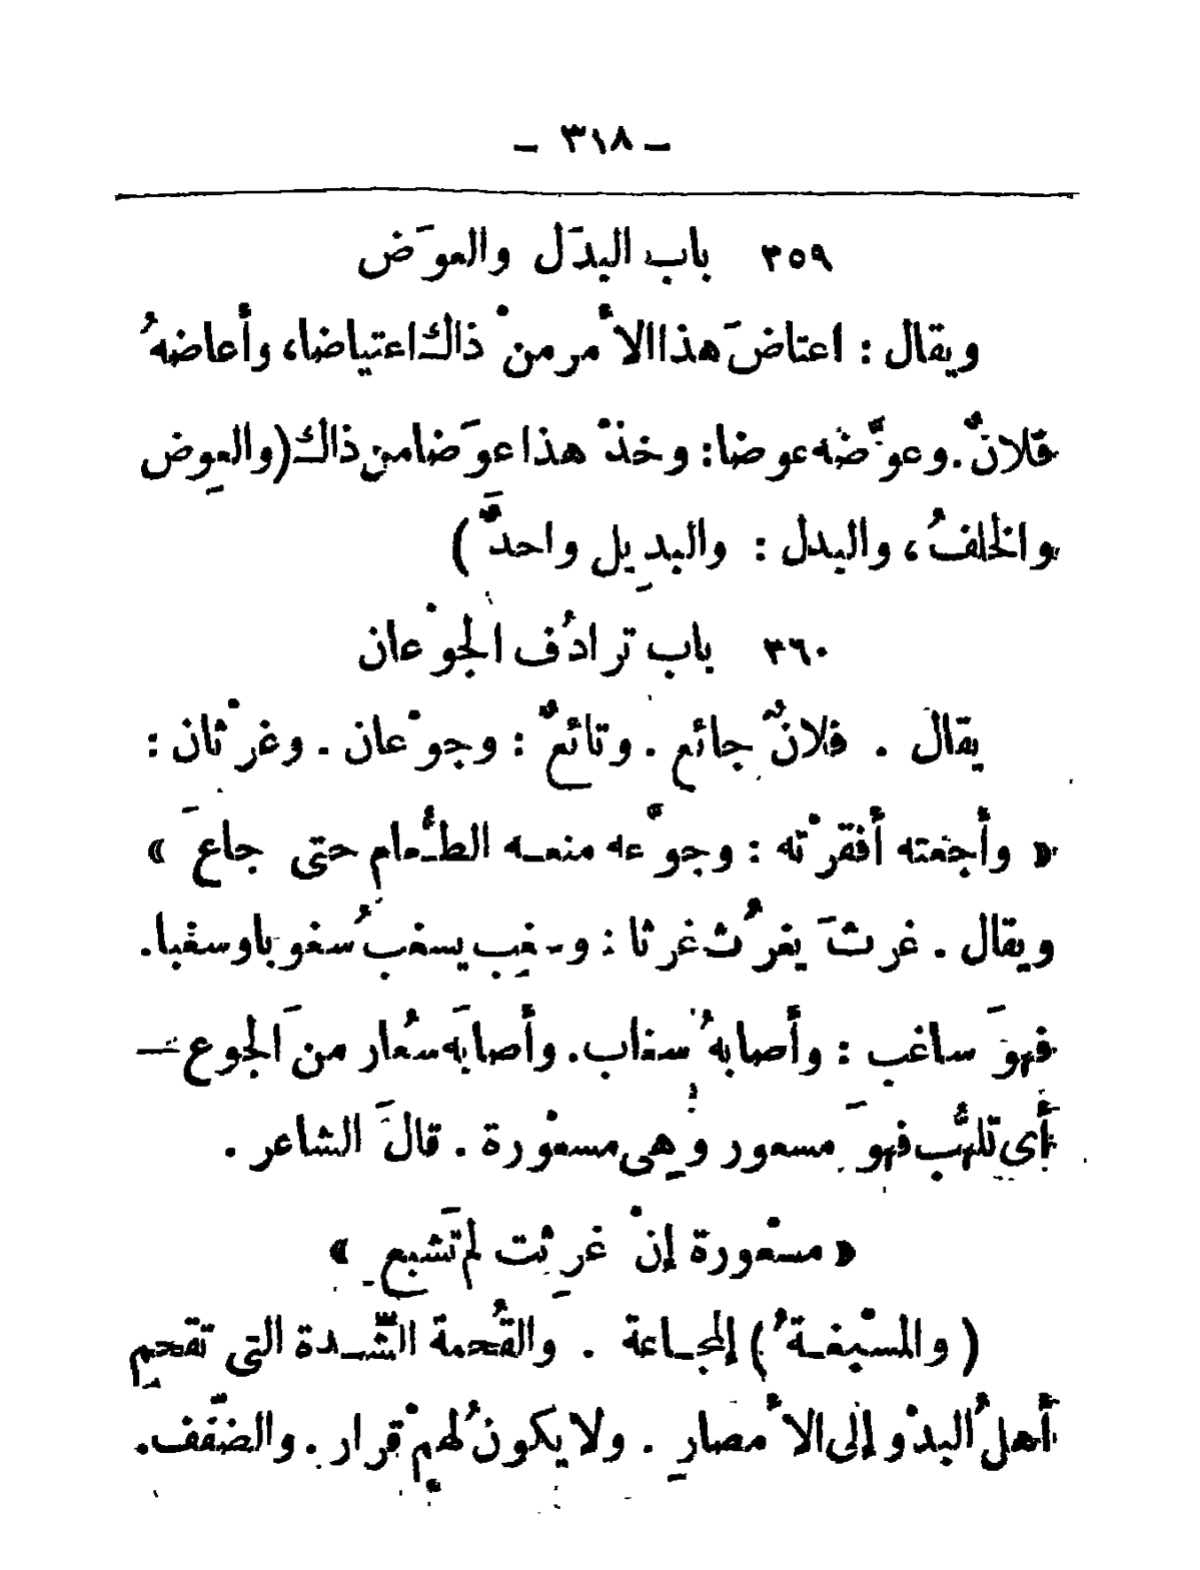 – ٣١٨ –
٣٥٩ باب البدَل والعوَض
ويقال : اعتاضَ هذا الأمر منْ ذاك اعتياضا، وأعاضهُ
فلانٌ. وعوَّضه عوضا: وخذْ هذا عوَضا من ذاك (والعِوض
والخلفُ، والبدل : والبدِيل واحدٌ)
٣٦٠ باب ترادُف الجوْعان
يقال . فلانٌ جائع . وتائعٌ : وجوْعان . وغرْثان :
« وأجعته أفقرْته : وجوَّعه منعه الطَّعام حتى جاعَ »
ويقال . غرثَ يغرُث غرثا : وسغِب يسغبُ سغوبا وسغبا.
فهوَ ساغب : وأصابهُ سغاب. وأصابَه سُعار من الجوع —
أي تلهُّب فهوَ مسعور وهى مسعْورة . قالَ الشاعر .
« مسْعورة إنْ غرِثت لم تَشبع »
( والمسْبغةُ ) المجاعة . والقُحمة الشَّدة التى تقحِم
أهلُ البدْو إلى الأمصارِ . ولا يكونُ لهمْ قرار . والضفَف.